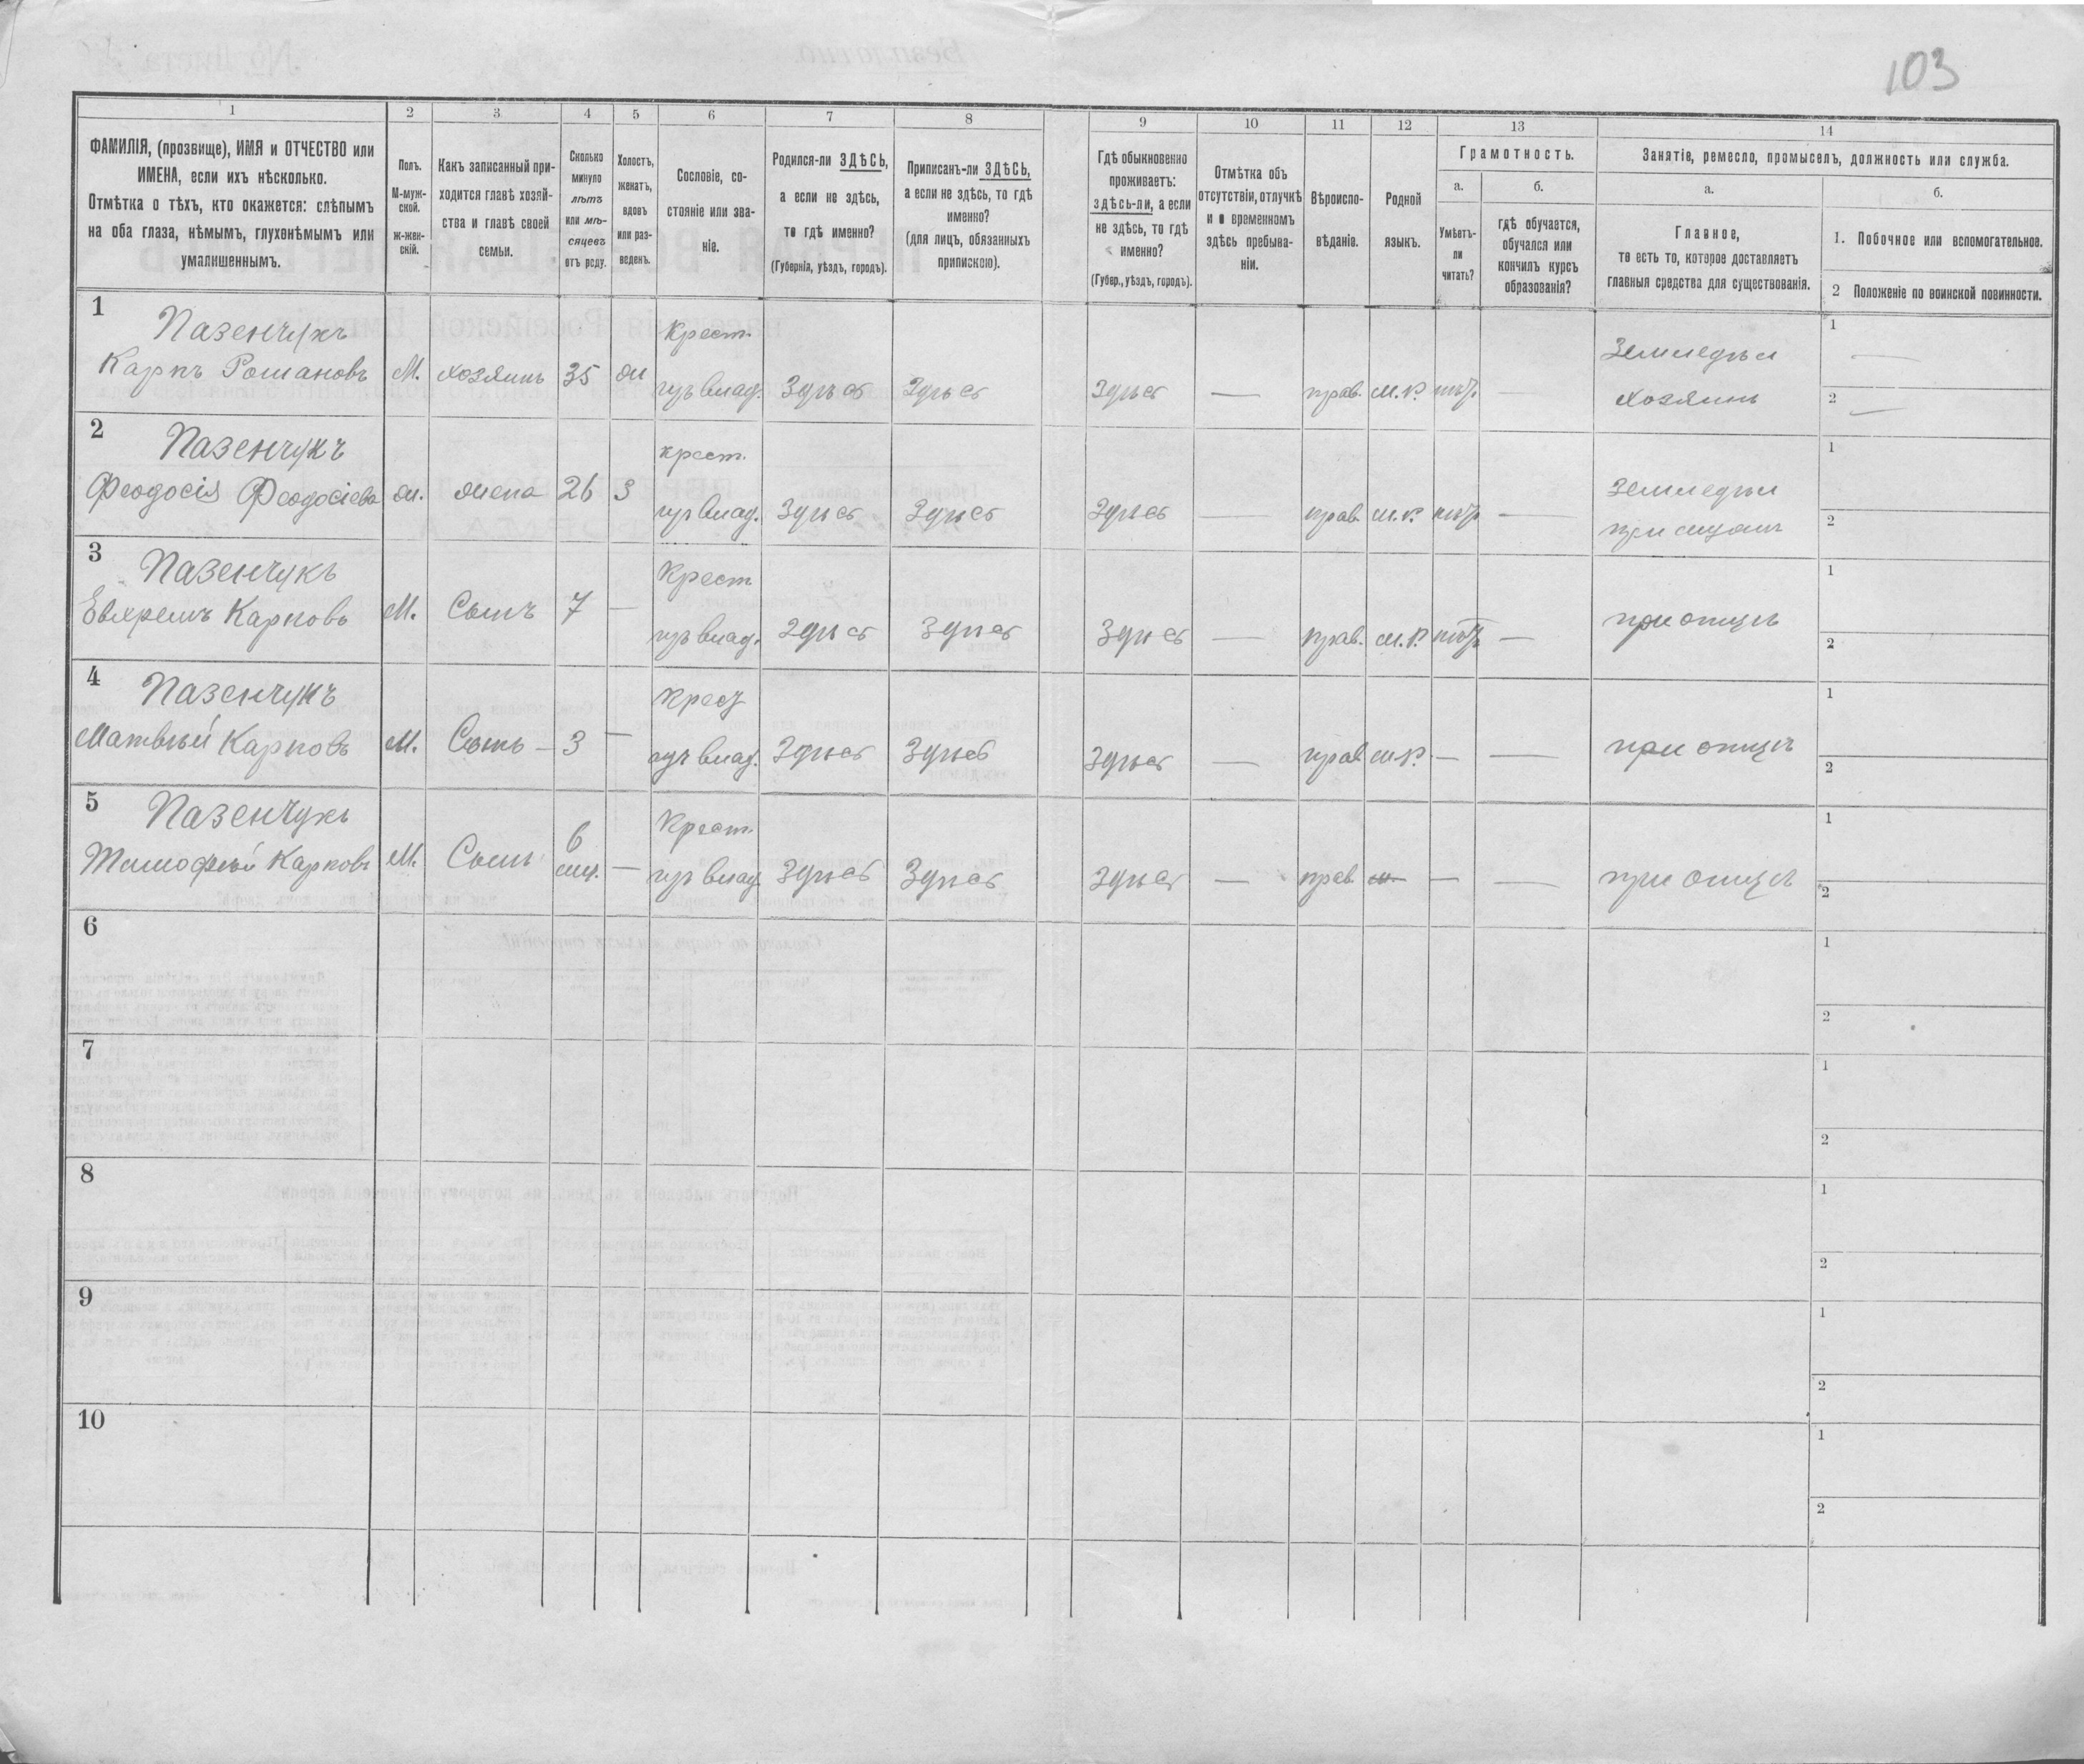 103
1
2
3
4
5
6
7
8
9
10
11
12
13
14
ФАМИЛІЯ, (прозвище), ИМЯ и ОТЧЕСТВО или
ИМЕНА, если ихъ нѣсколько.
Отмѣтка о тѣхъ, кто окажется: слѣпымъ
на оба глаза, нѣмымъ, глухонѣмымъ или
умалишеннымъ.
Полъ.
М-муж-
ской.
ж-жен-
скій.
Какъ записанный при-
ходится главѣ хозяй-
ства и главѣ своей
семьи.
Сколько
минуло
лѣтъ
или мѣ-
сяцевъ
отъ роду.
Холостъ,
женатъ,
вдовъ
или раз-
веденъ.
Сословіе, со-
стояніе или зва-
ніе.
Родился-ли ЗДѢСЬ,
а если не здѣсь,
то гдѣ именно?
(Губернія, уѣздъ, городъ).
Приписанъ-ли ЗДѢСЬ,
а если не здѣсь, то гдѣ
именно?
(для лицъ, обязанныхъ
припискою).
Гдѣ обыкновенно
проживаетъ:
здѣсь-ли, а если
не здѣсь, то гдѣ
именно?
(Губер., уѣздъ, городъ).
Отмѣтка объ
отсутствіи, отлучкѣ
и о временномъ
здѣсь пребыва-
ніи.
Вѣроиспо-
вѣданіе.
Родной
языкъ.
Грамотность.
а.
Умѣетъ-
ли
читать?
б.
гдѣ обучается,
обучался или
кончилъ курсъ
образованія?
Занятіе, ремесло, промыселъ, должность или служба.
а.
Главное,
то есть то, которое доставляетъ
главныя средства для существованія.
б.
1. Побочное или вспомогательное.
2 Положеніе по воинской повинности.
1
Пазенчукъ
Карпъ Романовъ
М.
хозяинъ
35
ж
Крест.
изъ влад.
Здѣсь
Здѣсь
Здѣсь
—
прав.
м.р.
нѣт
—
Земледѣл
хозяинъ
1 —
2 —
2
Пазенчукъ
Феодосія Феодосіева
ж.
жена
26
З
крест.
изъ влад.
Здѣсь
Здѣсь
Здѣсь
—
прав.
м.р.
нѣт
—
Земледѣл
при мужѣ
1
2
3
Пазенчукъ
Евхремъ Карповъ
М.
Сынъ
7
—
Крест
изъ влад.
Здѣсь
Здѣсь
Здѣсь
—
прав.
м.р.
нѣт
—
при отцѣ
1
2
4
Пазенчукъ
Матвѣй Карповъ
М.
Сынъ
3
—
Крест
изъ влад.
Здѣсь
Здѣсь
Здѣсь
—
прав
м.р.
—
—
при отцѣ
1
2
5
Пазенчукъ
Тимофѣй Карповъ
М.
Сынъ
6
мц.
—
Крест.
изъ влад
Здѣсь
Здѣсь
Здѣсь
—
прав.
—
—
при отцѣ
1
2
6
1
2
7
1
2
8
1
2
9
1
2
10
1
2